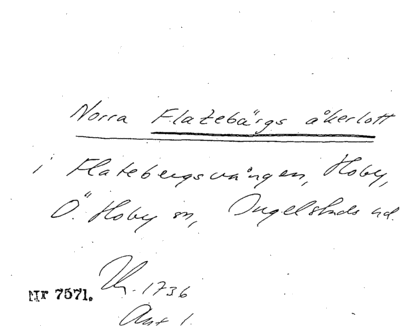 Norra Flatebärgs åkerlott
i Flatebergsvången, Hoby,
Ö. Hoby sn, Ingelstads hd.
Nr 7571.
Lh. 1736
Akt 1.